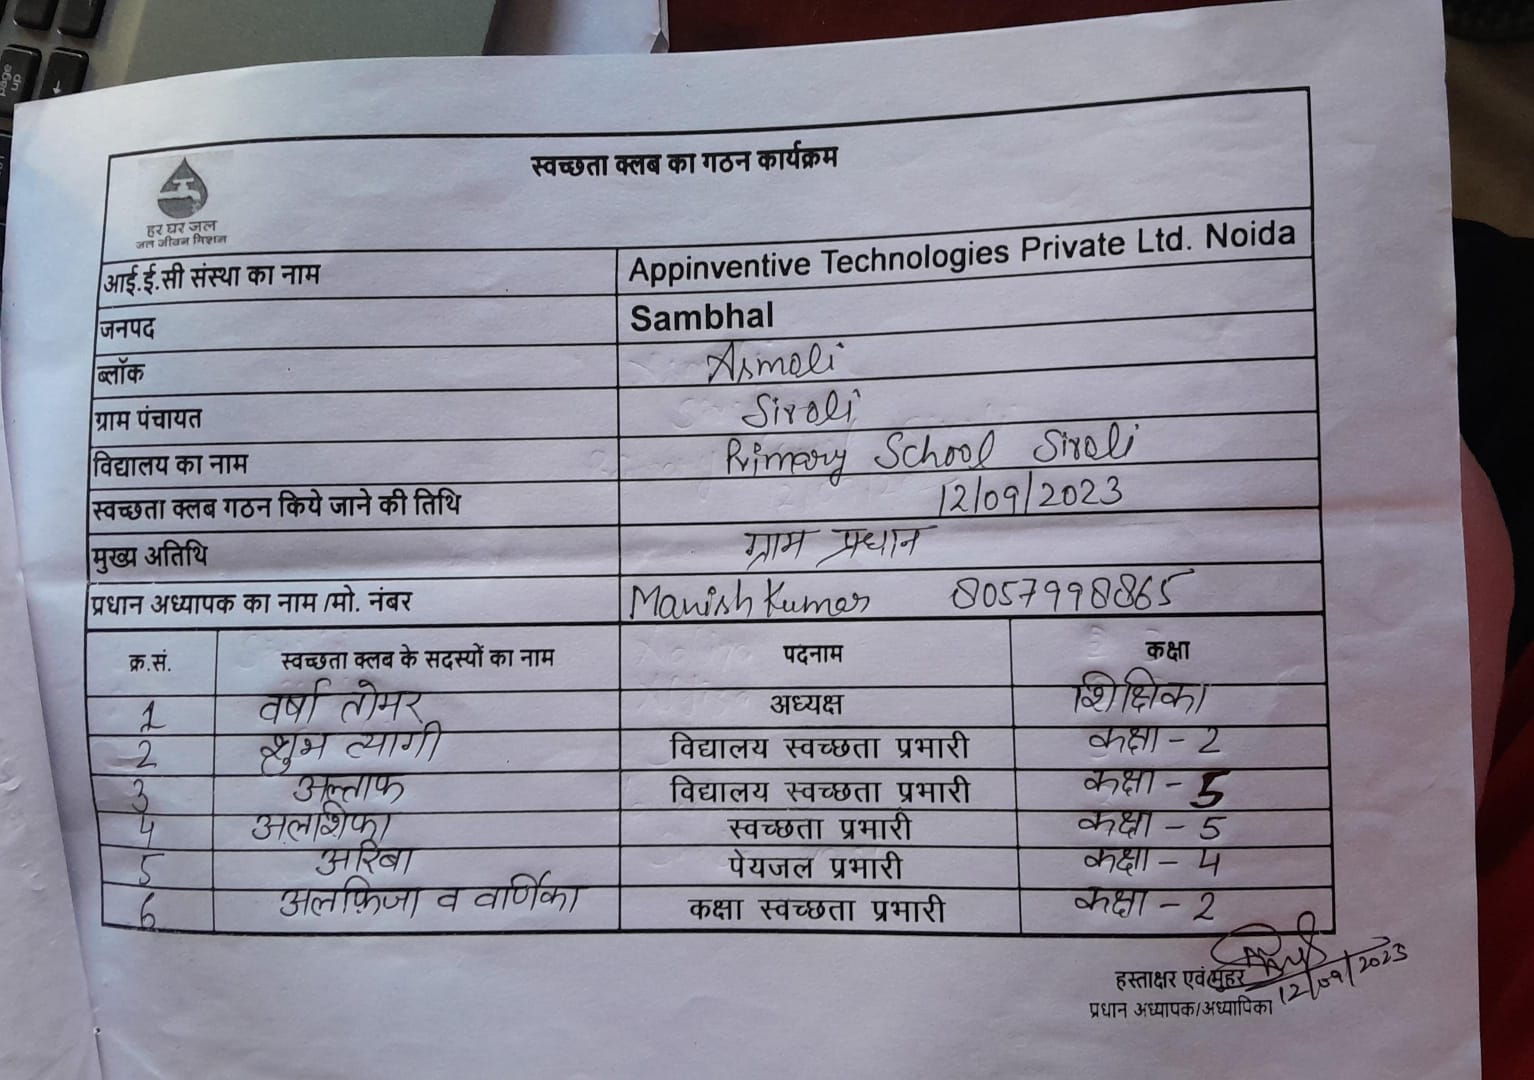 page up
स्वच्छता क्लब का गठन कार्यक्रम
हर घर जल
जल जीवन मिशन
आई.ई.सी संस्था का नाम Appinventive Technologies Private Ltd. Noida
जनपद Sambhal
ब्लॉक Asmoli
ग्राम पंचायत Siroli
विद्यालय का नाम Primary School Siroli
स्वच्छता क्लब गठन किये जाने की तिथि 12/09/2023
मुख्य अतिथि ग्राम प्रधान
प्रधान अध्यापक का नाम /मो. नंबर Manish Kumar 8057998865
क्र.सं. स्वच्छता क्लब के सदस्यों का नाम पदनाम कक्षा
1 वर्षा तोमर अध्यक्ष शिक्षिका
2 शुभ त्यागी विद्यालय स्वच्छता प्रभारी कक्षा - 2
3 अल्ताफ विद्यालय स्वच्छता प्रभारी कक्षा - 5
4 अलशिफा स्वच्छता प्रभारी कक्षा - 5
5 अरिबा पेयजल प्रभारी कक्षा - 4
6 अलफ़िजा व वार्णिका कक्षा स्वच्छता प्रभारी कक्षा - 2
हस्ताक्षर एवं मुहर 12/09/2023
प्रधान अध्यापक/अध्यापिका